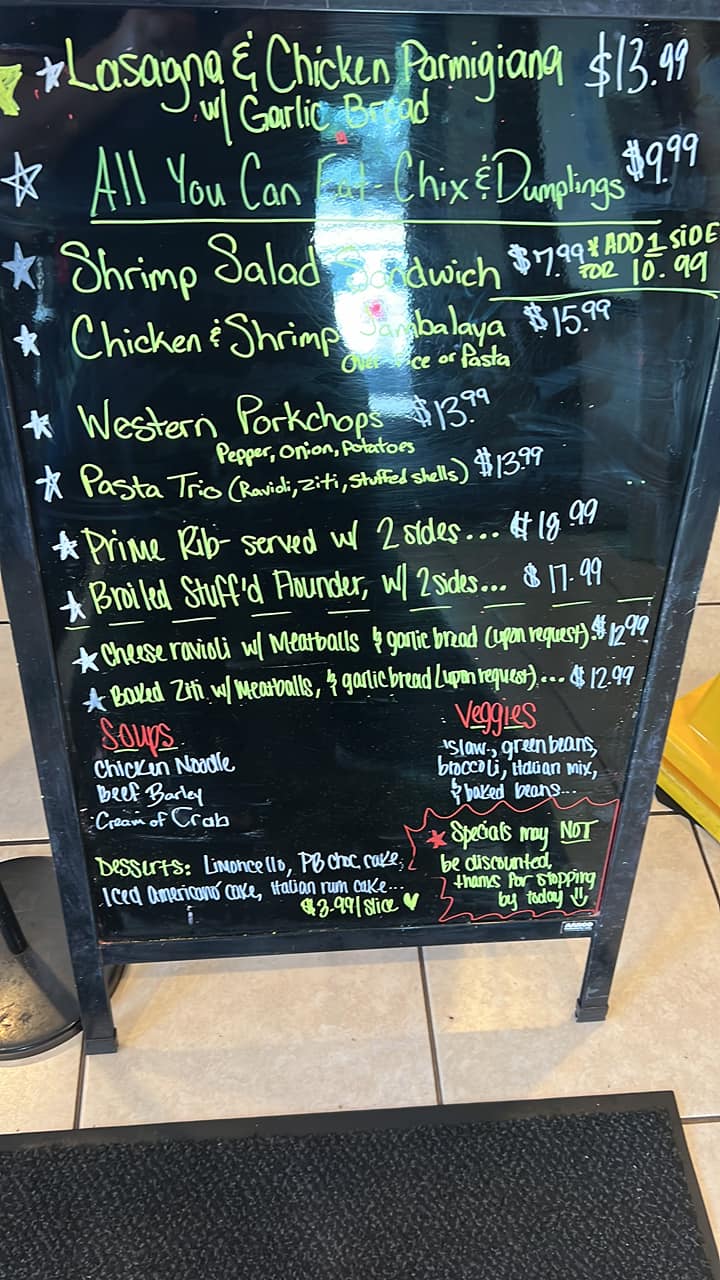 Lasagna & Chicken Parmigiana $13.99
w/ Garlic Bread
All You Can Eat - Chix & Dumplings $9.99
Shrimp Salad Sandwich $7.99 * ADD 1 SIDE
FOR 10.99
Chicken & Shrimp Jambalaya $15.99
Over Rice or Pasta
Western Porkchops $13.99
Pepper, Onion, Potatoes
Pasta Trio (Ravioli, Ziti, Stuffed shells) $13.99
Prime Rib- served w/ 2 sides... $18.99
Broiled Stuff'd Flounder, w/ 2 sides... $17.99
Cheese ravioli w/ Meatballs & garlic bread (upon request) $12.99
Baked Ziti w/ Meatballs, & garlic bread (upon request)... $12.99
Soups
Chicken Noodle
Beef Barley
Cream of Crab
Veggies
slaw, green beans,
broccoli, Italian mix,
& baked beans...
Desserts: Limoncello, PB choc cake,
Iced Americano cake, Italian rum cake...
$3.99/slice
Specials may NOT
be discounted,
thanks for stopping
by today